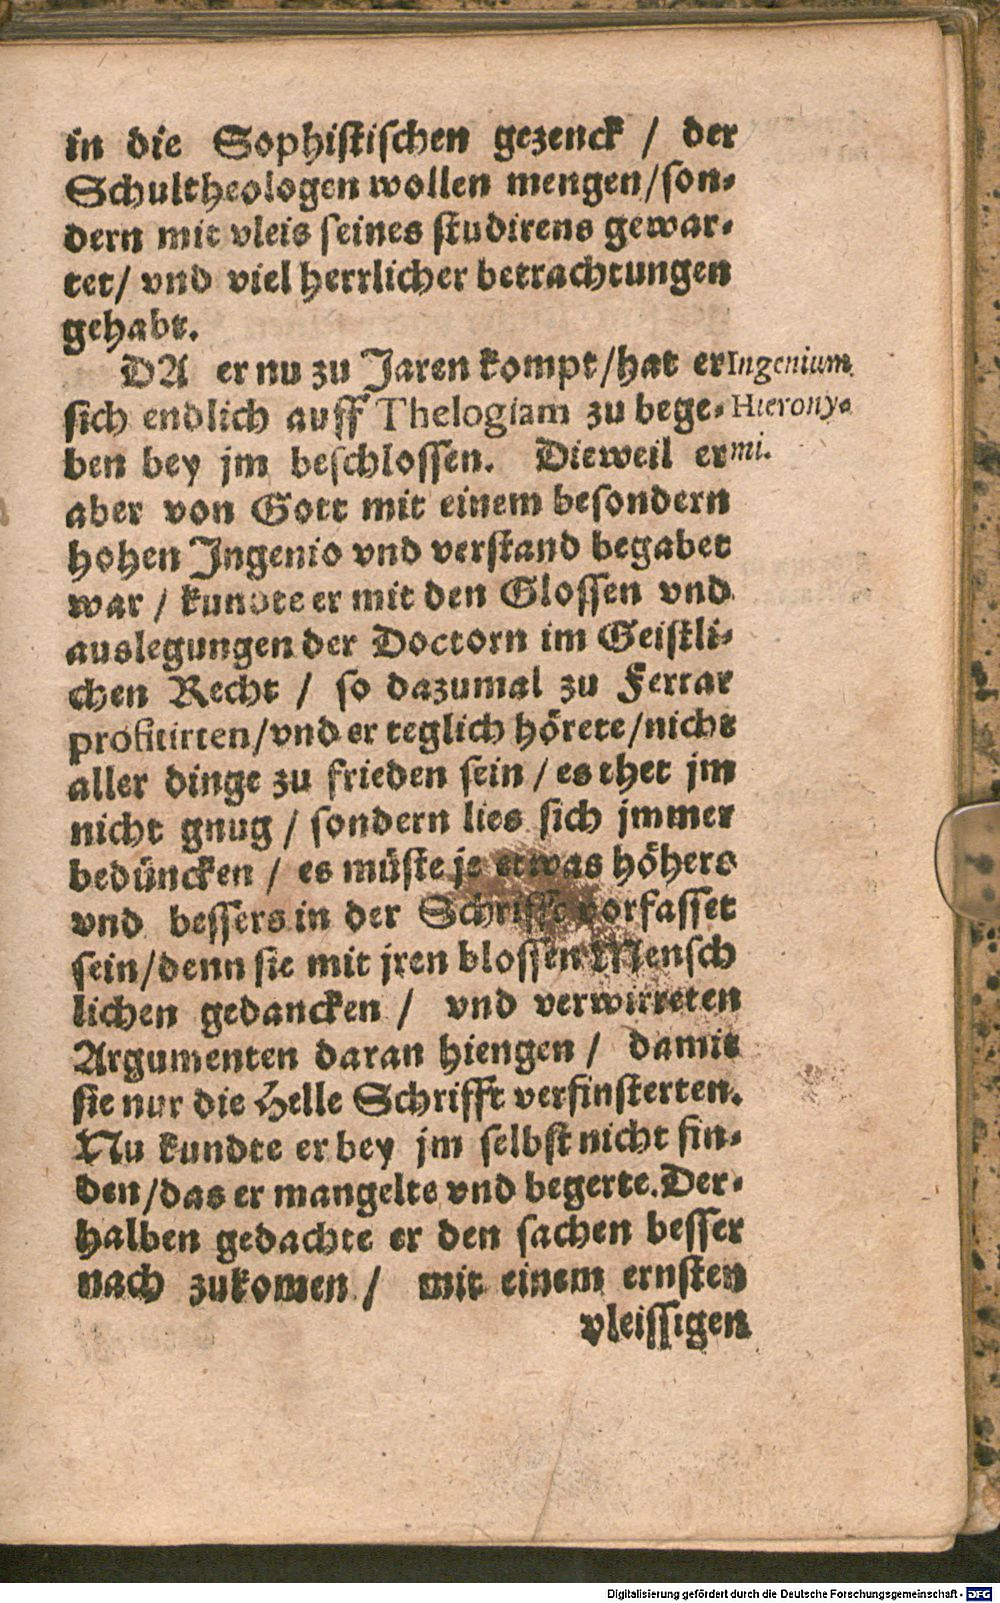 in die Sophistischen gezenck / der
Schultheologen wollen mengen/son-
dern mit vleis seines studirens gewar-
tet/ vnd viel herrlicher betrachtungen
gehabt.
DA er nu zu Jaren kompt/hat er
sich endlich auff Thelogiam zu bege-
ben bey jm beschlossen. Dieweil er
Ingenium
Hierony-
mi.
aber von Gott mit einem besondern
hohen Ingenio vnd verstand begabet
war / kundte er mit den Glossen vnd
auslegungen der Doctorn im Geistli-
chen Recht / so dazumal zu Ferrar
profitirten/vnd er teglich hörete/nicht
aller dinge zu frieden sein / es thet jm
nicht gnug / sondern lies sich jmmer
bedüncken / es müste je etwas höhers
vnd bessers in der Schrifft vorfasset
sein/denn sie mit jren blossen Mensch
lichen gedancken / vnd verwirreten
Argumenten daran hiengen / damit
sie nur die Helle Schrifft verfinsterten.
Nu kundte er bey jm selbst nicht fin-
den/das er mangelte vnd begerte.Der-
halben gedachte er den sachen besser
nach zukomen / mit einem ernsten
vleissigen
Digitalisierung gefördert durch die Deutsche Forschungsgemeinschaft - DFG